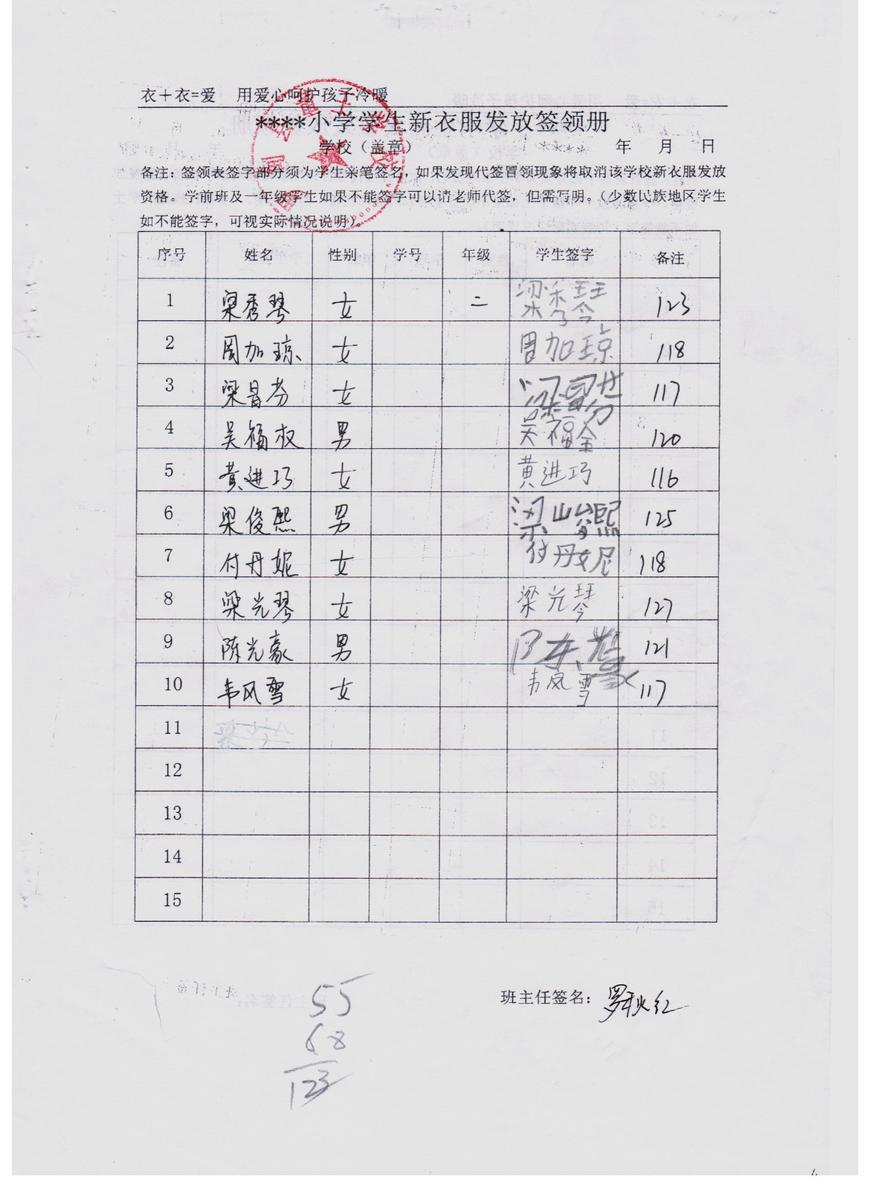 衣＋衣=爱　用爱心呵护孩子冷暖
****小学学生新衣服发放签领册
学校（盖章）　年　月　日
备注：签领表签字部分须为学生亲笔签名，如果发现代签冒领现象将取消该学校新衣服发放
资格。学前班及一年级学生如果不能签字可以请老师代签，但需写明。（少数民族地区学生
如不能签字，可视实际情况说明）
序号 姓名 性别 学号 年级 学生签字 备注
1 梁秀琴 女 二 梁秀琴 123
2 周加琼 女 周加琼 118
3 梁昌芬 女 梁昌芬 117
4 吴福权 男 吴福全 120
5 黄进巧 女 黄进巧 116
6 梁俊熙 男 梁 熙 125
7 付丹妮 女 付丹妮 118
8 梁光琴 女 梁光琴 127
9 陈光豪 男 陈光豪 121
10 韦风雪 女 韦风雪 117
11
12
13
14
15
班主任签名：罗秋红
55
68
123